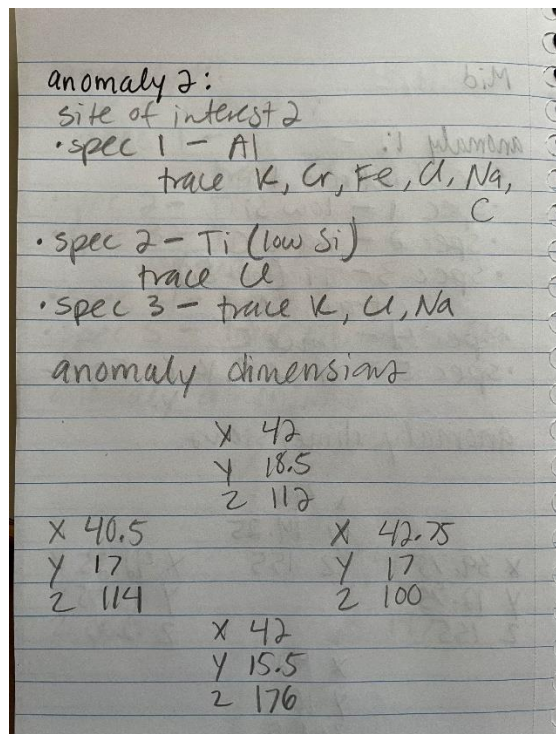 anomaly 2:
site of interest 2
• spec 1 - Al
trace K, Cr, Fe, Cl, Na,
C
• spec 2 - Ti (low Si)
trace Cl
• spec 3 - trace K, Cl, Na
anomaly dimensions
X 42
Y 18.5
Z 112
X 40.5
Y 17
Z 114
X 42.75
Y 17
Z 100
X 42
Y 15.5
Z 176